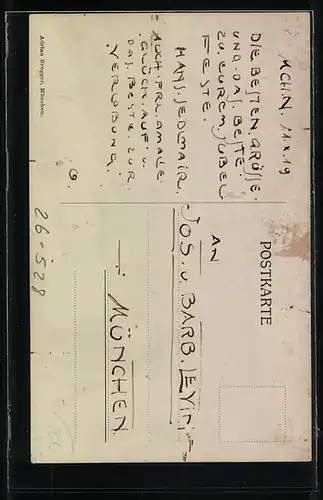 MCHN. 11.X.19
DIE BESTEN GRÜSSE.
UND. DAS. BESTE.
ZU. EUREM. JUBEL
FESTE.
HANS. SEDLMAIR.
AUCH. FRL. AMALIE.
GLÜCK. AUF. U.
DAS. BESTE. ZUR.
VERLOBUNG.
Adrian Brugger, München.
26-528
POSTKARTE
AN
JOS. U. BARB.
MÜNCHEN.